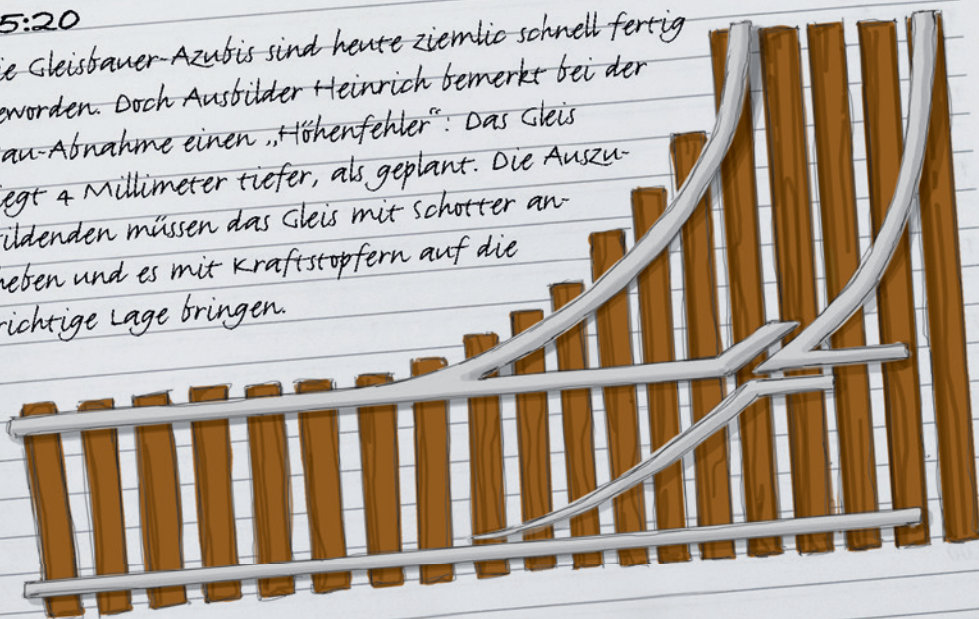 5:20
ie Gleisbauer-Azubis sind heute ziemlic schnell fertig
eworden. Doch Ausbilder Heinrich bemerkt bei der
au-Abnahme einen „Höhenfehler“: Das Gleis
iegt 4 Millimeter tiefer, als geplant. Die Auszu-
ildenden müssen das Gleis mit Schotter an-
heben und es mit Kraftstopfern auf die
richtige Lage bringen.